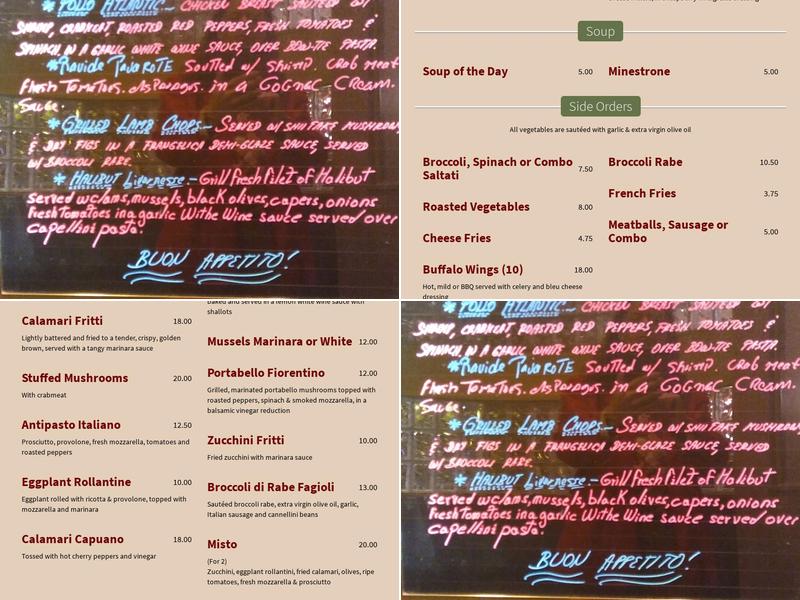 * POLLO ATLANTIC - CHICKEN BREAST
SHRIMP, CRABMEAT, ROASTED RED PEPPERS, FRESH TOMATOES &
SPINACH, IN A GARLIC WHITE WINE SAUCE, OVER BOW-TIE PASTA.
*Ravide PavaroTE Soutled w/ Shrimp. Crab meat
Flesh Tomatoes. Asparagus. in a COGNAC CREAM.
Sauce.
*GRILLED LAMB CHOPS - SERVED W/ SHIITAKE MUSHROOM
& DAY FIGS IN A FRANGELICA DEMI-GLAZE SAUCE, SERVED
W/ BROCCOLI RABE.
* HALIBUT Livornesse - Grill fresh filet of Halibut
Served w clams, mussels, black olives, capers, onions
fresh Tomatoes in a garlic Withe Wine sauce served over
capellini pasta.
BUON APPETITO!
Soup
Soup of the Day 5.00
Minestrone 5.00
Side Orders
All vegetables are sautéed with garlic & extra virgin olive oil
Broccoli, Spinach or Combo
Saltati 7.50
Roasted Vegetables 8.00
Cheese Fries 4.75
Buffalo Wings (10) 18.00
Hot, mild or BBQ served with celery and bleu cheese
dressing
Broccoli Rabe 10.50
French Fries 3.75
Meatballs, Sausage or
Combo 5.00
Calamari Fritti 18.00
Lightly battered and fried to a tender, crispy, golden
brown, served with a tangy marinara sauce
Stuffed Mushrooms 20.00
With crabmeat
Antipasto Italiano 12.50
Prosciutto, provolone, fresh mozzarella, tomatoes and
roasted peppers
Eggplant Rollantine 10.00
Eggplant rolled with ricotta & provolone, topped with
mozzarella and marinara
Calamari Capuano 18.00
Tossed with hot cherry peppers and vinegar
baked and served in a lemon white wine sauce with
shallots
Mussels Marinara or White 12.00
Portabello Fiorentino 12.00
Grilled, marinated portabello mushrooms topped with
roasted peppers, spinach & smoked mozzarella, in a
balsamic vinegar reduction
Zucchini Fritti 10.00
Fried zucchini with marinara sauce
Broccoli di Rabe Fagioli 13.00
Sautéed broccoli rabe, extra virgin olive oil, garlic,
Italian sausage and cannellini beans
Misto 20.00
(For 2)
Zucchini, eggplant rollantini, fried calamari, olives, ripe
tomatoes, fresh mozzarella & prosciutto
* POLLO ATLANTIC - CHICKEN BREAST
SHRIMP, CRABMEAT, ROASTED RED PEPPERS, FRESH TOMATOES &
SPINACH, IN A GARLIC WHITE WINE SAUCE, OVER BOW-TIE PASTA.
*Ravide PavaroTE Soutled w/ Shrimp. Crab meat
Flesh Tomatoes. Asparagus. in a COGNAC CREAM.
Sauce.
*GRILLED LAMB CHOPS - SERVED W/ SHIITAKE MUSHROOM
& DAY FIGS IN A FRANGELICA DEMI-GLAZE SAUCE, SERVED
W/ BROCCOLI RABE.
* HALIBUT Livornesse - Grill fresh filet of Halibut
Served w clams, mussels, black olives, capers, onions
fresh Tomatoes in a garlic Withe Wine sauce served over
capellini pasta.
BUON APPETITO!